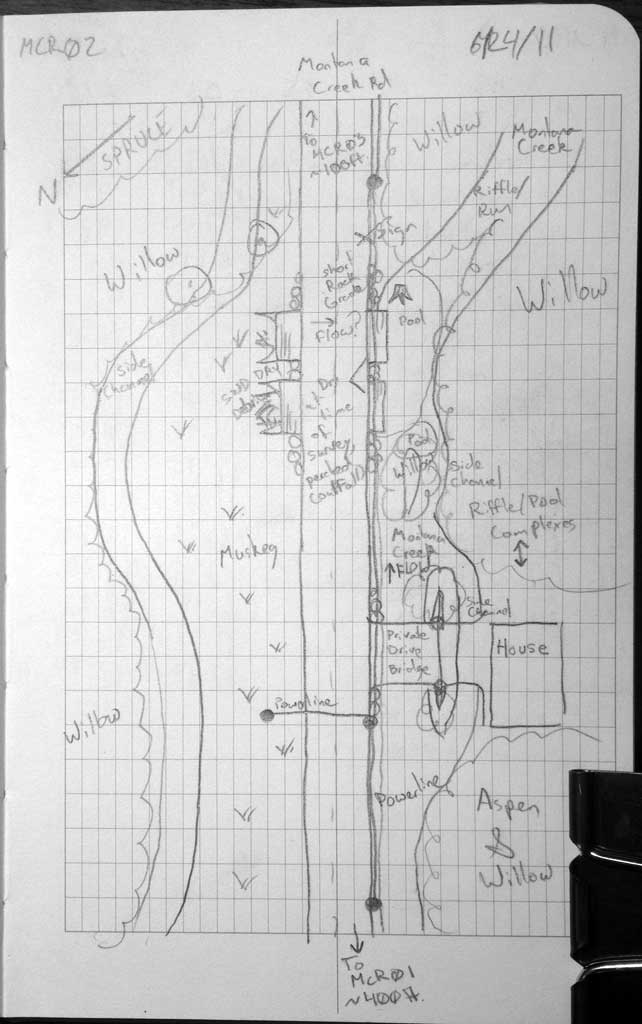 MCR02
6/24/11
Montana
Creek Rd
N
SPRUCE
To
MCR03
~100ft.
Willow
Montana
Creek
Riffle/
Run
Sign
Willow
Short
Rock
Grade
Willow
Flow?
Pool
side
Channel
DRY
Debris
Dry
time
of
survey
perched
Outfall
Pool
Willow
side
Channel
Riffle/Pool
Complexes
Muskeg
Montana
Creek
Flow
side
Channel
Private
Drive
Bridge
House
Powerline
Willow
Powerline
Aspen
&
Willow
To
MCR01
~400ft.